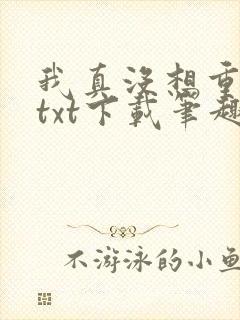 我真没想重
txt下载笔趣
不游泳的小鱼